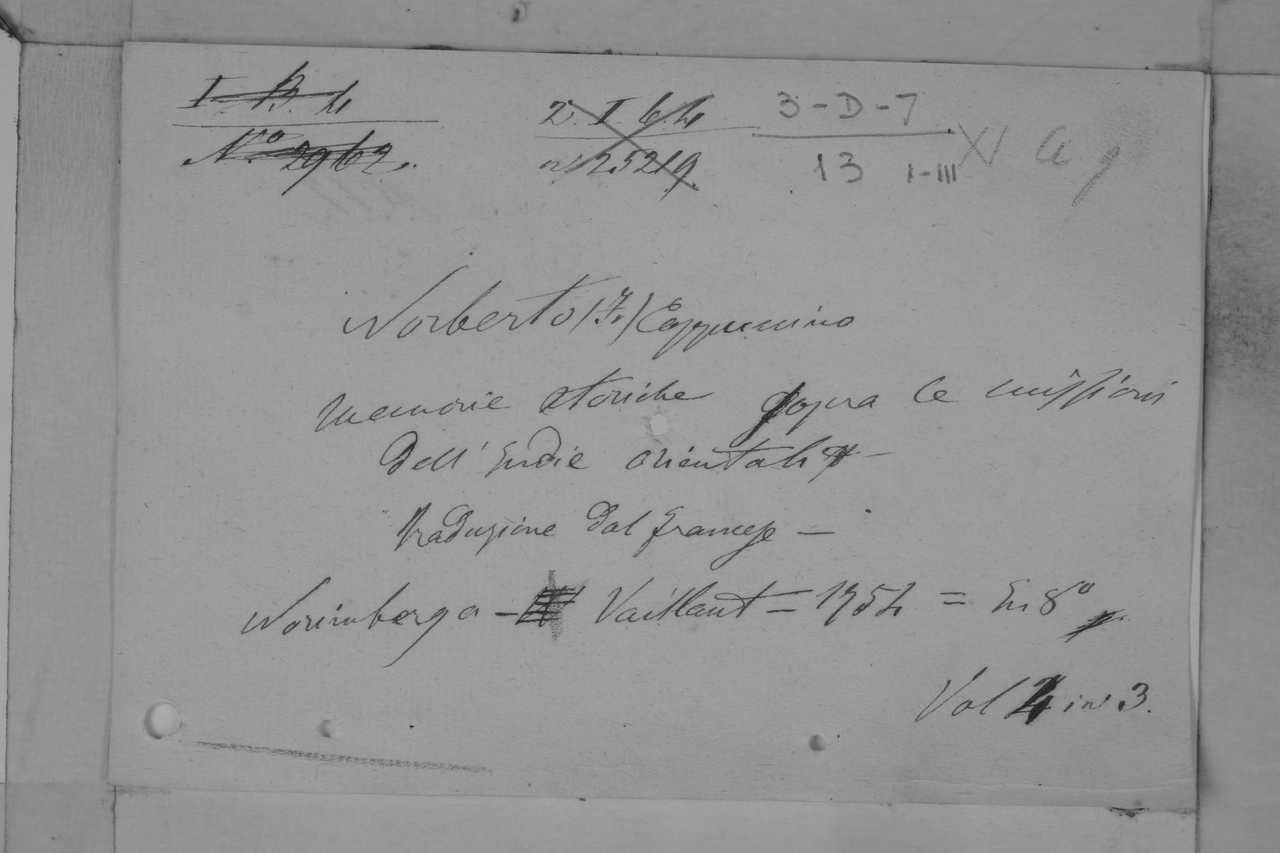 I B. 4
N.º 2962.
2. I 6 4
nº 25219
3-D-7
13 I-III
XV a
Norberto (F.) Cappuccino
Memorie storiche sopra le missioni
dell'Indie orientali -
traduzione dal francese —
Norimberga - Vaillant = 1754 = In 8º
Vol 4 in 3.